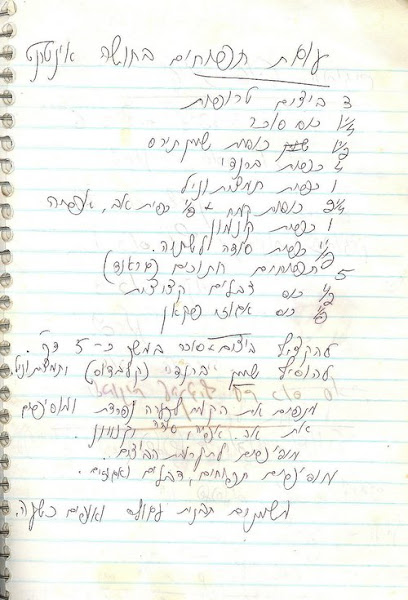 עוגת תפוחים בחושה אינטנט
3 ביצים טרופות
1¼ כוס סוכר
1½ כוסות שמן תירס
4 כפות ברנדי
1 כפית תמצית וניל
2¼ כוסות קמח + ½1 כפית אב. אפיה
1 כפית קינמון
½ כפית סודה לשתיה.
5 תפוחים חתוכים (גראנד)
½ כוס דבלים קצוצות
½ כוס אגוזי פקאן
להקציף ביצים+סוכר במשך כ-5 דק'.
להוסיף שמן, ברנדי (קלבדוס) ותמצ' וניל
מנפים את הקמח לקערה נפרדת ומוסיפים
את אב. אפיה, סודה וקנמון.
מוסיפים לתערובת הביצים.
מוסיפים תפוחים, דבלים ואגוזים.
משמנים תבנית עגולה ואופים כשעה.